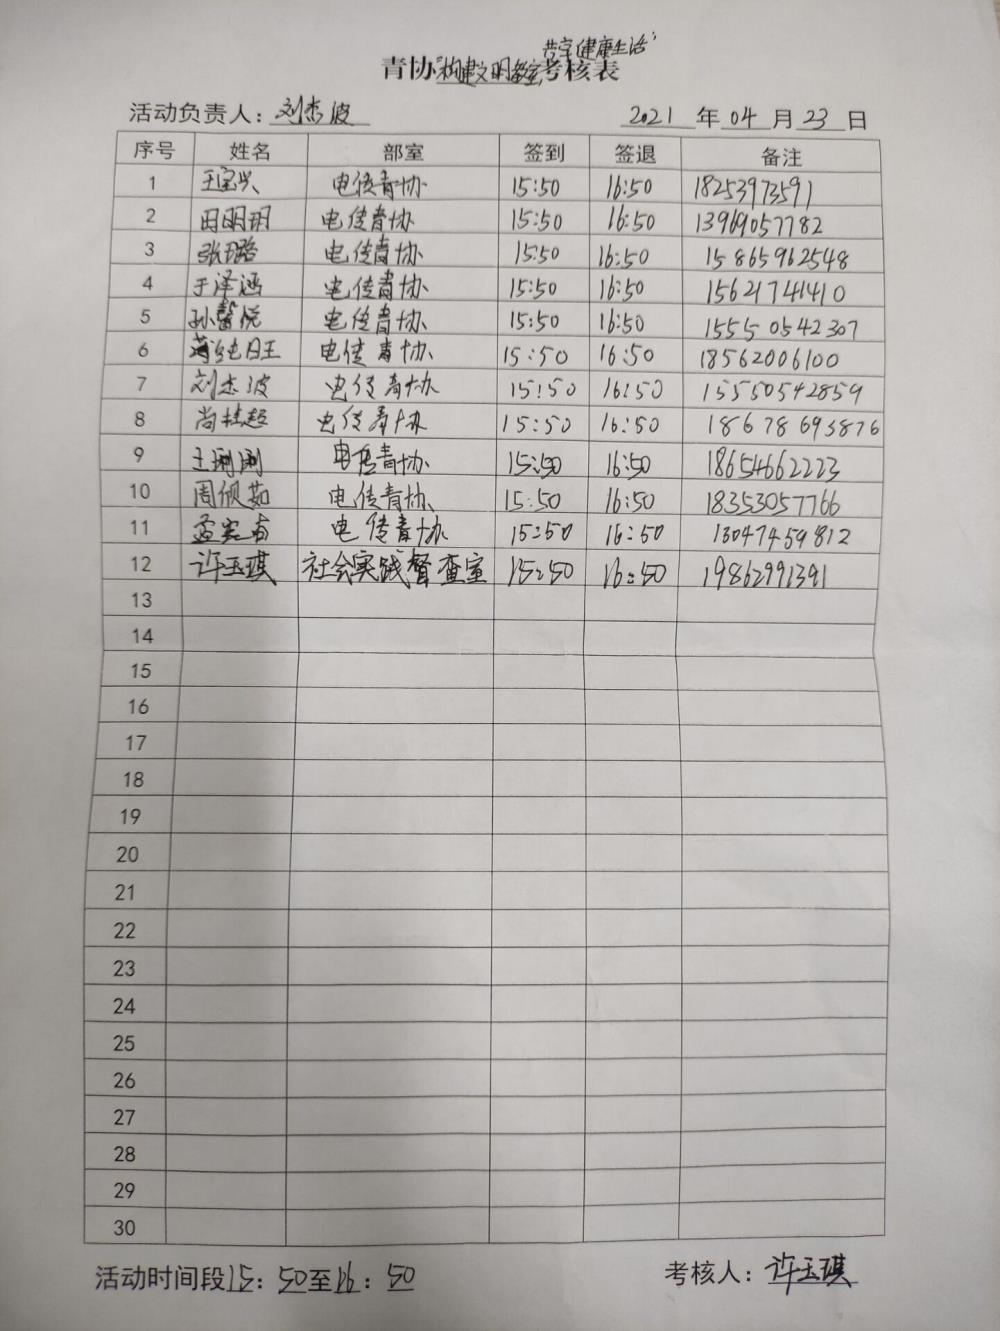 共享健康生活"
青协"构建文明教室考核表
活动负责人：刘杰波 2021 年 04 月 23 日
序号 姓名 部室 签到 签退 备注
1 王宝兴 电信青协 15:50 16:50 18253973591
2 田明玥 电信青协 15:50 16:50 13969057782
3 张璐 电信青协 15:50 16:50 15865962548
4 于泽涵 电信青协 15:50 16:50 15621741410
5 孙馨悦 电信青协 15:50 16:50 15550542307
6 电信青协 15:50 16:50 18562006100
7 刘杰波 电信青协 15:50 16:50 15550542859
8 尚桂超 电信青协 15:50 16:50 18678693876
9 王 电信青协 15:50 16:50 18654662223
10 周佩茹 电信青协 15:50 16:50 18353057766
11 孟宪 电信青协 15:50 16:50 13047459812
12 许玉琪 社会实践督查室 15:50 16:50 19862991391
13
14
15
16
17
18
19
20
21
22
23
24
25
26
27
28
29
30
活动时间段15：50至16：50 考核人：许玉琪